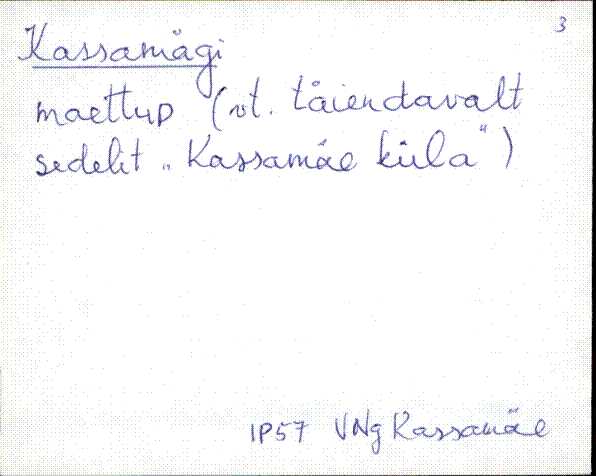 3
Kassamägi
maettup (vt. täiendavalt
sedelit „Kassamäe küla")
IP57 VNg Kassamäe